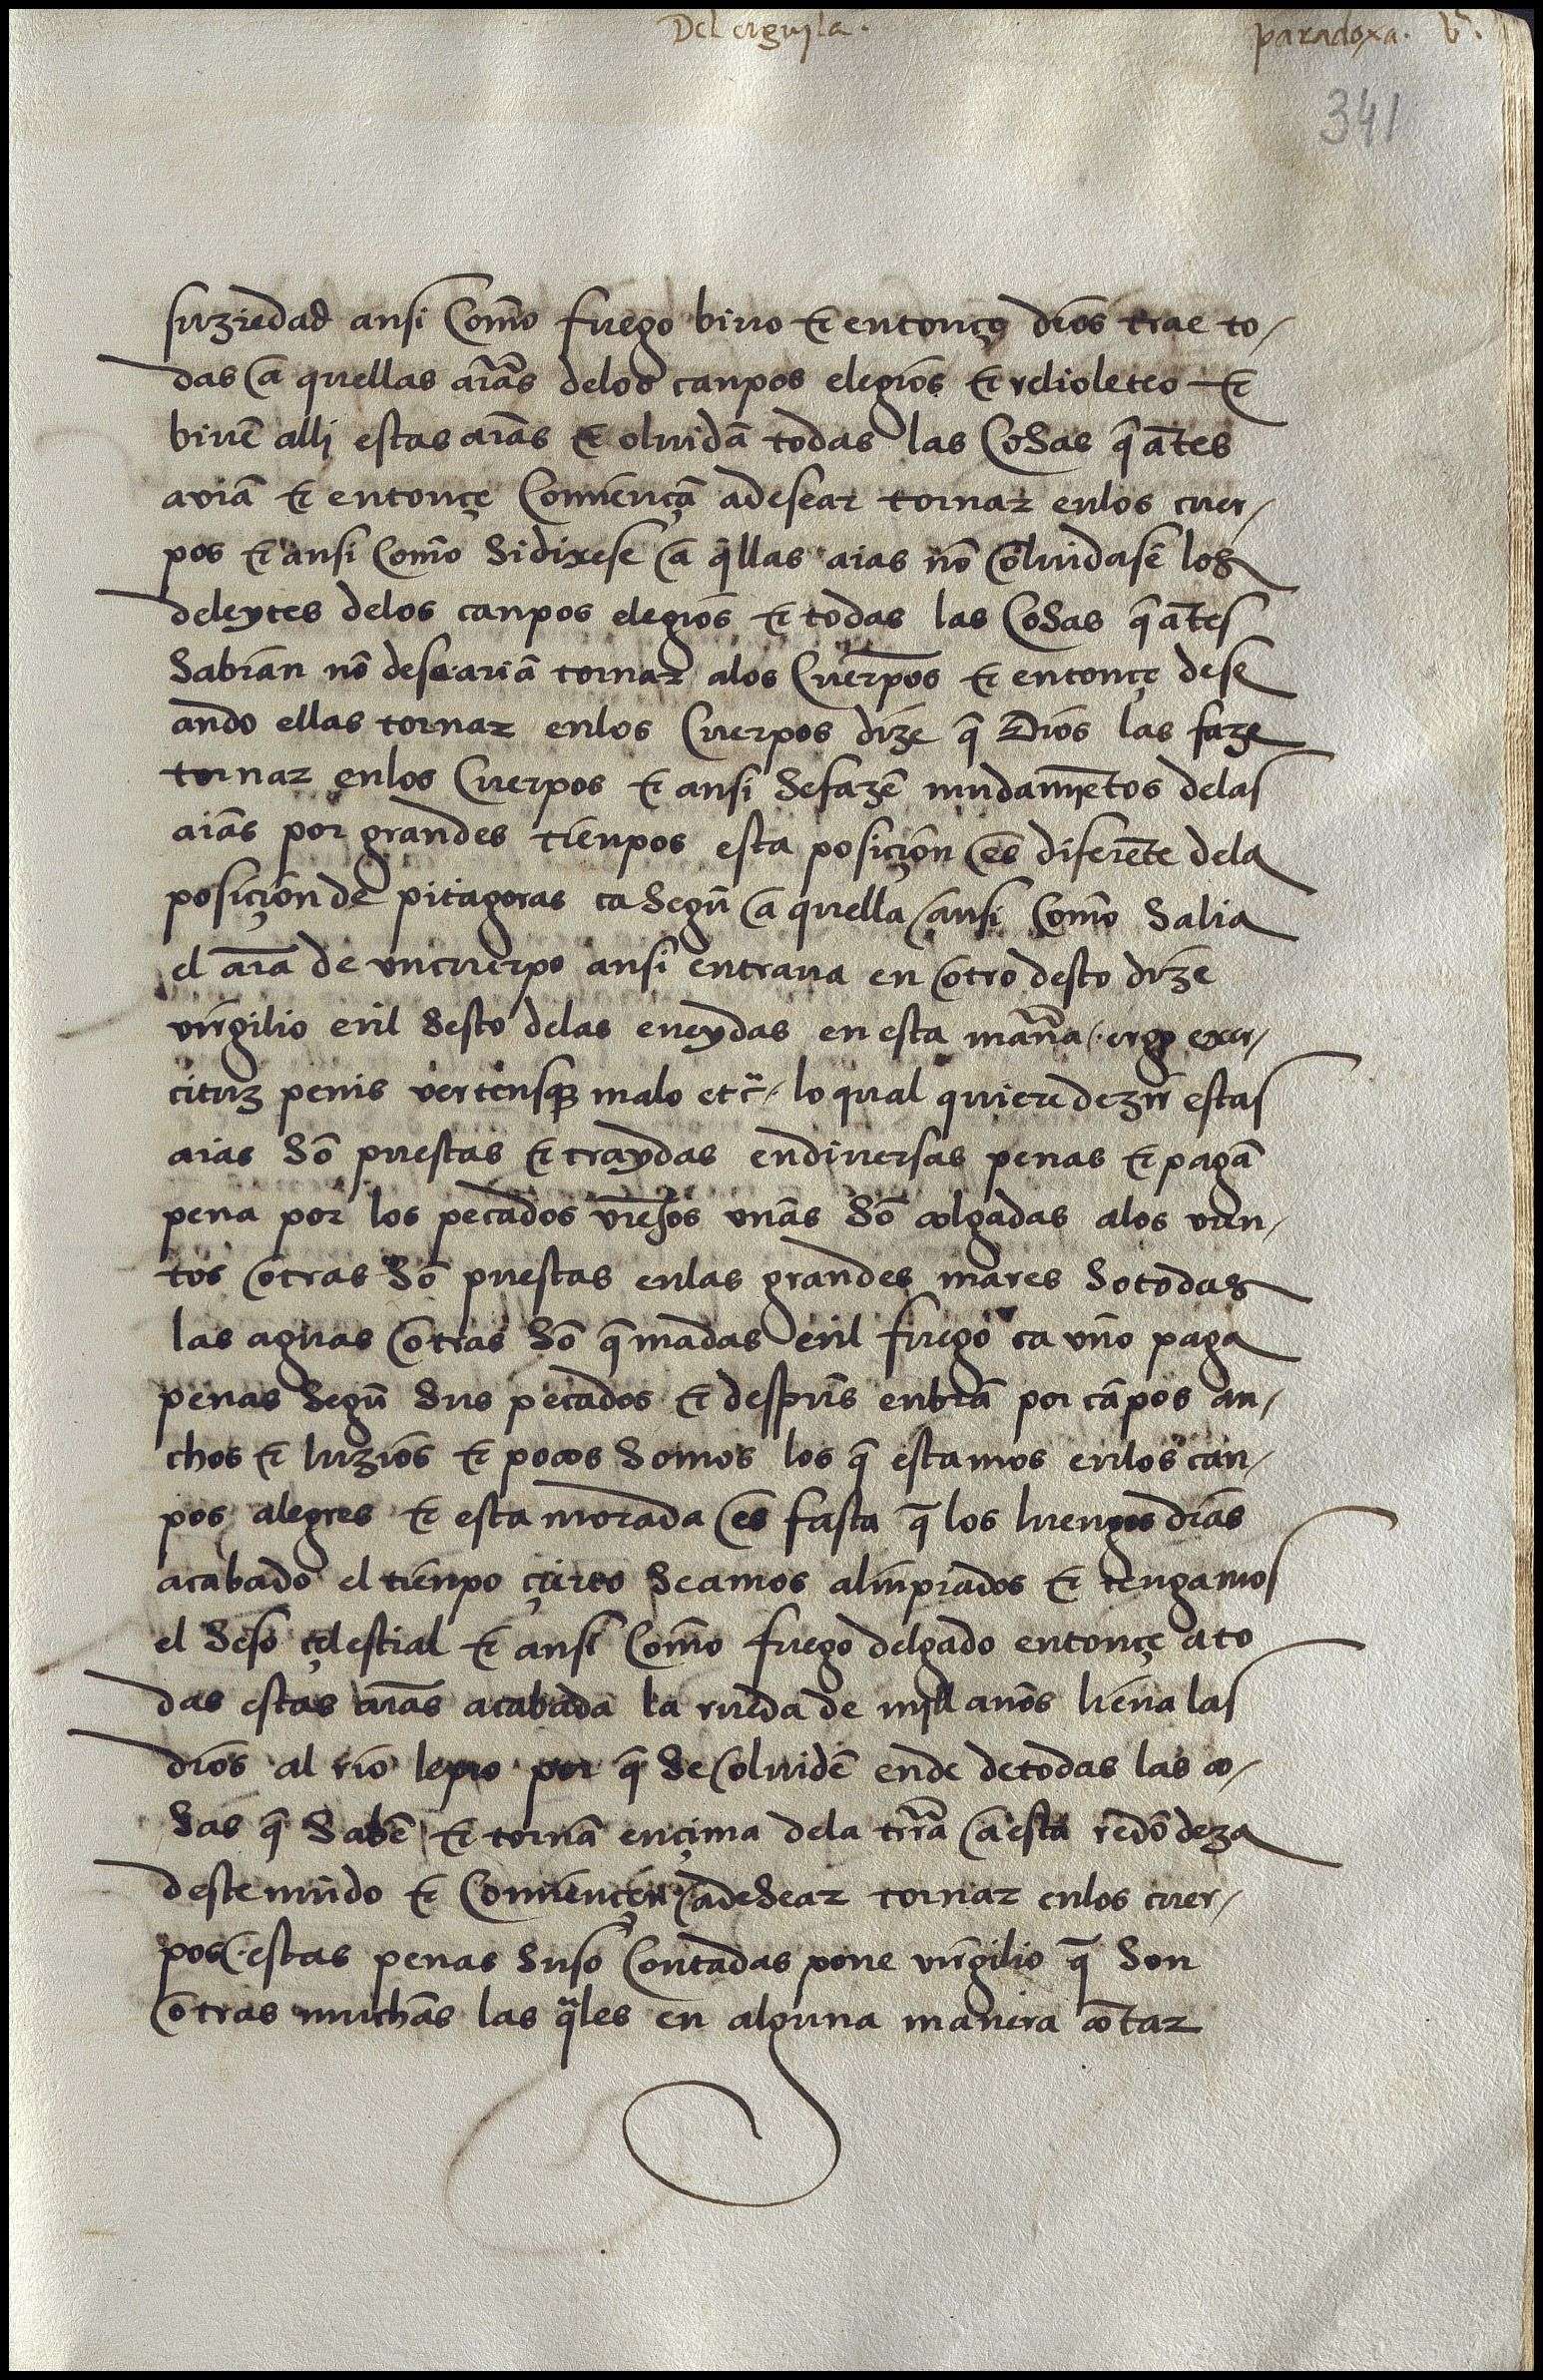 Del erguila. paradoxa. v.
341
suziedad ansi Com̃o fuego biuo ⁊ entonçe dios trae to-
das a quellas aĩas delos canpos elegios ⁊ relioleteo ⁊
biuẽ alli estas aĩas ⁊ oluidã todas las Cosas q̃ ãtes
aviã ⁊ entonçe Comiençã adesear tornar enlos cuer-
pos ⁊ ansi Com̃o sidixese a q̃llas aias nõ oluidasẽ los
deleytes delos canpos elegios ⁊ todas las Cosas q̃ ãtes
sabian nõ desearian tornar alos Cuerpos ⁊ entonçe dese
ando ellas tornar enlos Cuerpos dize q̃ Dios las faze
tornar enlos Cuerpos ⁊ ansi sefazẽ mudamiẽtos delas
aĩas por grandes tienpos esta posiçion es diferẽte dela
posiçion de pitagoras ca segũ a quella ansi Com̃o salia
el aĩa de vn cuerpo ansi entraua en otro desto dize
virgilio enl sesto delas eneydas en esta mañra. ergo exer-
cituz penis vertensqȝ malo etc̃. lo qual quiere dezir estas
aias sõ puestas ⁊ traydas endiuersas penas ⁊ pagã
pena por los pecados viejos vnas sõ colgadas alos vien-
tos otras sõ puestas enlas grandes mares so todas
las aguas otras sõ q̃madas enl fuego ca vno paga
penas segũ sus pecados ⁊ despues entrã por cãpos an-
chos ⁊ luzios ⁊ pocos somos los q̃ estamos enlos can-
pos alegres ⁊ esta morada es fasta q̃ los luengos dias
acabado el tienpo çierto seamos alinpiados ⁊ tengamos
el seso çelestial ⁊ ansi Com̃o fuego delgado entonçe a to
das estas aĩas acabada la rueda de mjll anõs lieua las
dios al rio por q̃ se oluidẽ ende de todas las co-
sas q̃ sabẽ ⁊ tornã ençima dela trr̃a a esta redõdeza
deste mũdo ⁊ Comiençen adesear tornar enlos cuer-
pos. estas penas suso Contadas pone virgilio q̃ son
otras muchas las q̃les en alguna manera cõtar